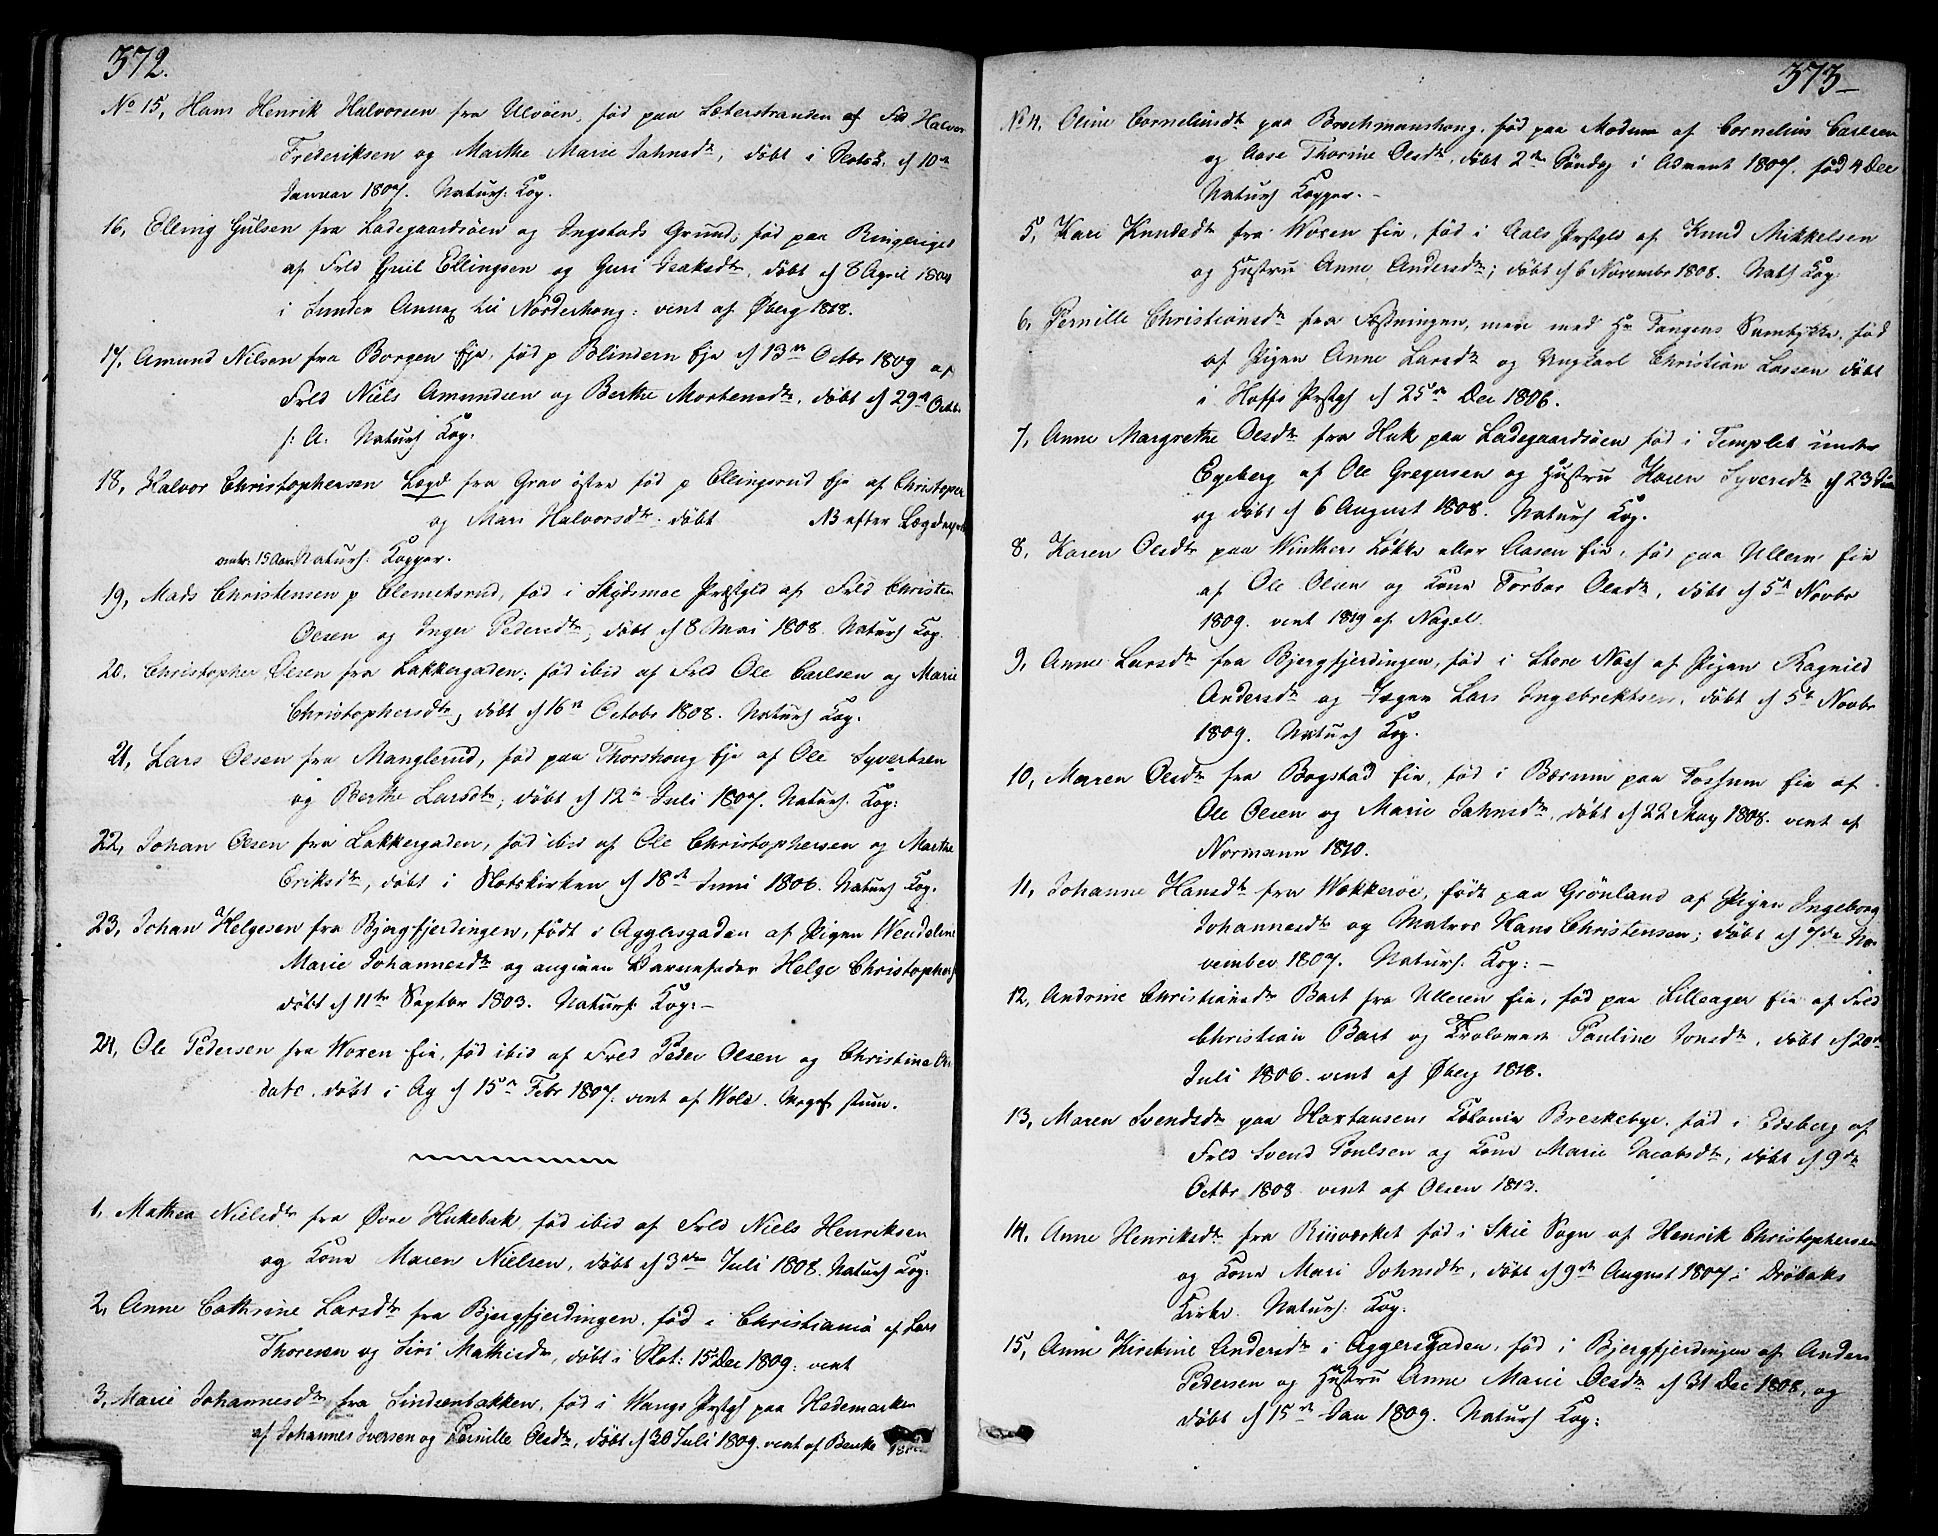 372.
No 15, Hans Henrik Halvorsen fra Ulvöen, föd paa Sæterstranden af Fld Halvor
Frederiksen og Marthe Marie Jahnsdtr, döbt i Slotsk. d 10de
Januar 1807. Naturl: Kop.
16, Elling Gulsen fra Ladegaardsöen og Ingstads Grund, föd paa Ringeriget
af Fld Gul Ellingsen og Guri Isaksdtr, döbt d 8 April 1804
i Lunder Annex til Norderhoug: vent af Øberg 1818.
17, Amund Nilsen fra Borgen Eje, föd p Blindern Eje d 13de Octbr 1809 af
Fld Niels Amundsen og Berthe Mortensdtr, döbt d 29de Octbr
s: A. Naturl Kop:
18, Halvor Christophersen Lægd fra Grav östre föd p Ellingsrud Eje af Christopher
og Mari Halvorsdtr. döbt NB efter Lægdes
omtr. 15 Aar. Naturl: Kopper.
19, Mads Christensen p Clemetsrud, föd i Skydsmoe Præstgld af Fld Christen
Olsen og Inger Pedersdtr, döbt d 8 Mai 1808. Naturl Kop.
20. Christopher Olsen fra Lakkergaden; föd ibid af Fld Ole Carlsen og Marie
Christophersdtr, döbt d 16de Octobr 1808. Naturl Kop.
21, Lars Olsen fra Manglerud, föd paa Thorshoug Eje af Ole Syvertsen
og Berthe Larsdtr, döbt d 12te Juli 1807. Naturl. Kop:
22, Johan Olsen fra Lakkergaden, föd ibid af Ole Christophersen og Marthe
Eriksdtr, döbt i Slotskirken d 18de Juni 1806. Naturl Kop.
23, Johan Helgesen fra Bjergfjerdingen, födt i Aggersgaden af Pigen Wendeline
Marie Johannesdtr og angiven Barnefader Helge Christophers
döbt d 11te Septbr 1803. Naturl. Kop:-
24, Ole Pedersen fra Woxen Eie, föd ibid af Fld Peder Olsen og Christine
döbt i Ag d 15de Febr 1807. vent af Wold. stum.
1, Mathea Nielsdtr fra Øvre Hukebak, föd ibid af Fld Niels Henriksen
og Kone Maren Nielsen, döbt d 3die Juli 1808. Naturl Kop:
2, Anne Cathrine Larsdtr fra Bjergfjerdingen, föd i Christiania af Lars
Thoresen og Siri Mathisdtr, döbt i Slot: 15 Dec 1809: vent
3, Marie Johannesdtr fra Lindsenbakken, föd i Wangs Præstgl paa Hedemarken
af Johannes Iversen og Pernille Olsdtr, döbt d 30 Juli 1809. vent af Bencke
373-
No 4. Oline Corneliusdtr paa Brochmanshoug, föd paa Modum af Cornelius Carlsen
og Aase Thorine Olsdtr, döbt 2den Söndag i Advent 1807. föd 4 Dec
Naturl Kopper.-
5, Kari Knudsdtr fra Woxen Eie, föd i Aals Præstgld af Knud Mikkelsen
og Hustru Anne Andersdtr; döbt d 6 Novembr 1808. Natl Kop:
6, Pernille Christiansdtr fra Fæstningen, mere med Hr Tangens Samtykke, föd
af Pigen Anne Larsdtr og Ungkarl Christian Lassen döbt
i Hoffs Præstgl d 25de Dec 1806.
7, Anne Margrethe Olsdtr fra Huk paa Ladegaardsöen föd i Templet under
Egeberg af Ole Gregersen og Hustru Karen Syversdtr d 23
og döbt d 6 August 1808. Naturl Kop.
8, Karen Olsdtr paa Winthers Løkke eller Aasen Eie, föd paa Ullern Eie
af Ole Olsen og Kone Torbor Olsdtr, döbt d 5te Novbr
1809. vent 1819 af Nagel.
9, Anne Larsdtr fra Bjergfjerdingen, föd i Store Næss af Pigen Ragnild
Andersdtr og Jæger Lars Ingebrektsen, döbt d 5te Novbr
1809. Naturl Kop.
10, Maren Olsdtr fra Bogstad Eie, föd i Bærum paa Fossum Eie af
Ole Olsen og Marie Jahnsdtr, döbt d 22 May 1808. vent af
Normann 1810.
11, Johanne Hansdtr fra Wækkeröe, födt paa Grönland af Pigen Ingeborg
Johannesdtr og Matros Hans Christensen; döbt d 7de No-
vember 1807. Naturl. Kop:-
12, Andrine Christiansdtr Bart fra Ullern Eie, föd paa Lilleager Eie af Fld
Christian Bart og Trolovede Pauline Jonsdtr, döbt d 20de
Juli 1806. vent af Øberg 1818.
13, Maren Svendsdtr paa Haxtausens Kolonie Breskebye, föd i Edsberg af
Fld Svend Poulsen og Kone Marie Jacobsdtr, döbt d 9de
Octbr 1808. vent af Olsen 1813.
14, Anne Henriksdtr fra Riisværket föd i Skie Sogn af Henrik Christophersen
og Kone Mari Johnsdtr, döbt d 9de August 1807 i Dröbaks
Kirke. Naturl: Kop:
15, Anne Kirstine Andersdtr i Aggersgaden, föd i Bjergfjerdingen af Anders
Pedersen og Hustru Anne Marie Olsdtr d 31 Dec 1808, og
döbt d 15de Jan 1809. Naturl Kop: